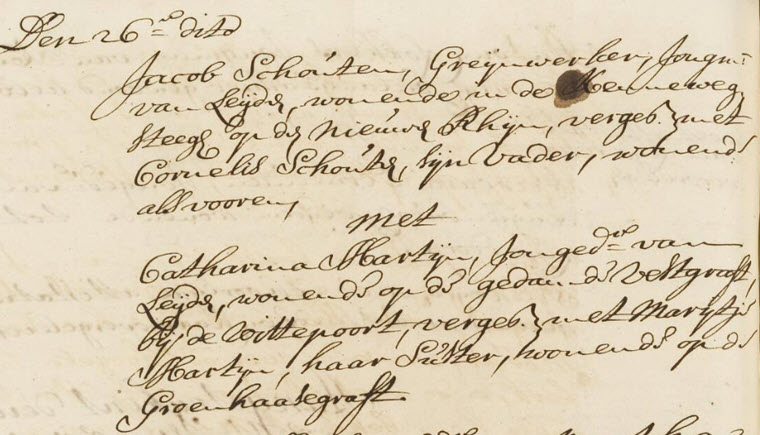 Den 26.en dito
Jacob Schouten, Greijnwerker, Jongm:
van Leijde, wonende in de Kenneweg
steege op de Nieuwe Rhijn, vergeb: met
Cornelis Schoute, sijn Vader, wonende
als vooren,
met
Catharina Martijn, Jonged:re van
Leijde, wonende op de gedamde Vestgraft,
bij de Wittepoort, vergeb: met Marijtje
Martijn, haar Suster, wonende op de
Groenhaasegraft.